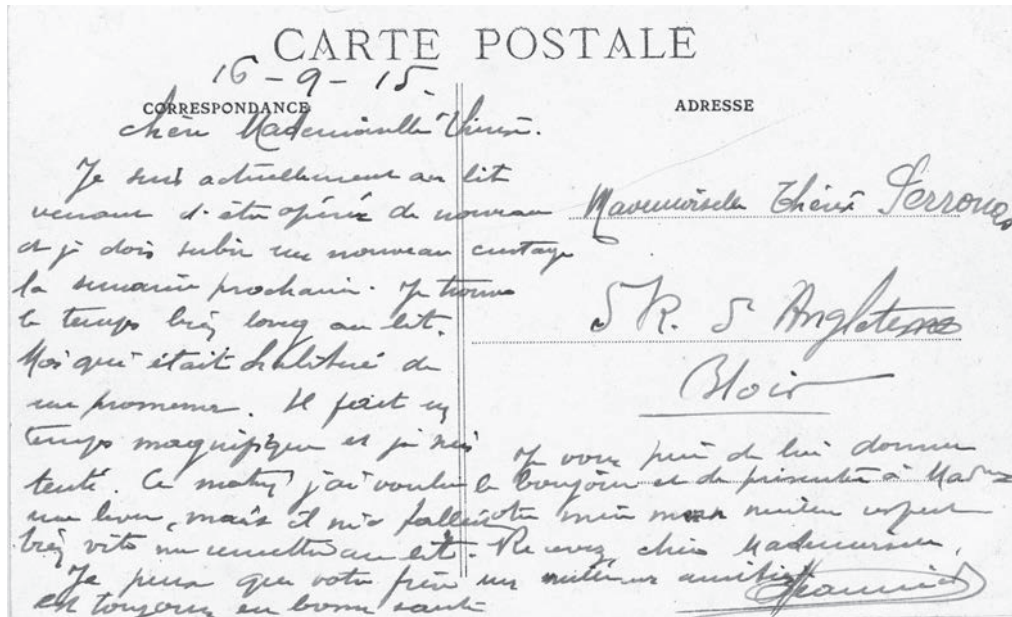 CARTE POSTALE
16-9-15.
CORRESPONDANCE
ADRESSE
Chère Mademoiselle Thérèse.
Je suis actuellement au lit
venant d'être opéré de nouveau
et je dois subir un nouveau curetage
la semaine prochaine. Je trouve
le temps bien long au lit.
Moi qui était habitué de
me promener. Il fait un
temps magnifique et je suis
tenté. Ce matin j'ai voulu
me lever, mais il m'a fallu
bien vite me remettre au lit.
Je pense que votre frère
est toujours en bonne santé
Je vous prie de lui donner
le bonjour et de présenter à Madame
votre mère mon meilleur respect
Recevez, chère Mademoiselle,
mes meilleures amitiés
Mademoiselle Thérèse
5 R. d'Angleterre
Blois